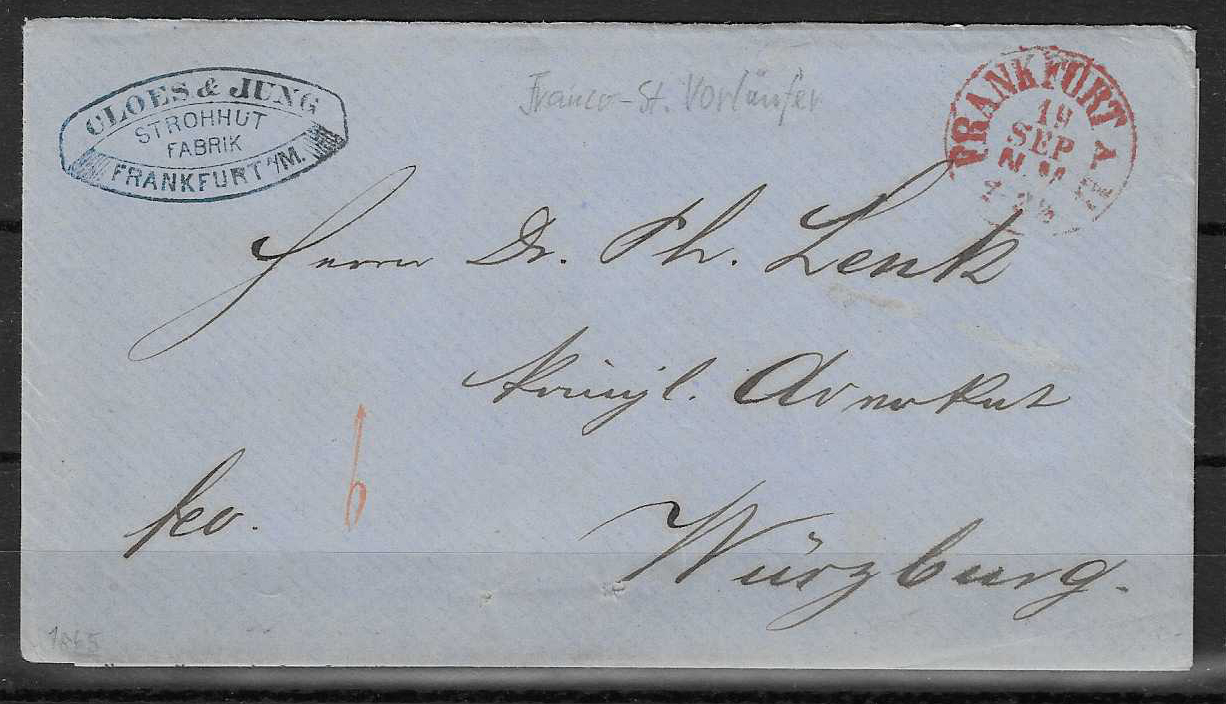 CLOES & JUNG
STROHHUT
FABRIK
FRANKFURT a/M.
Franco-St. Vorläufer
FRANKFURT A. M.
19
SEP
N.M.
Herrn Dr. Ph. Lenk
königl. Advokat
fco.
6
Würzburg.
1865